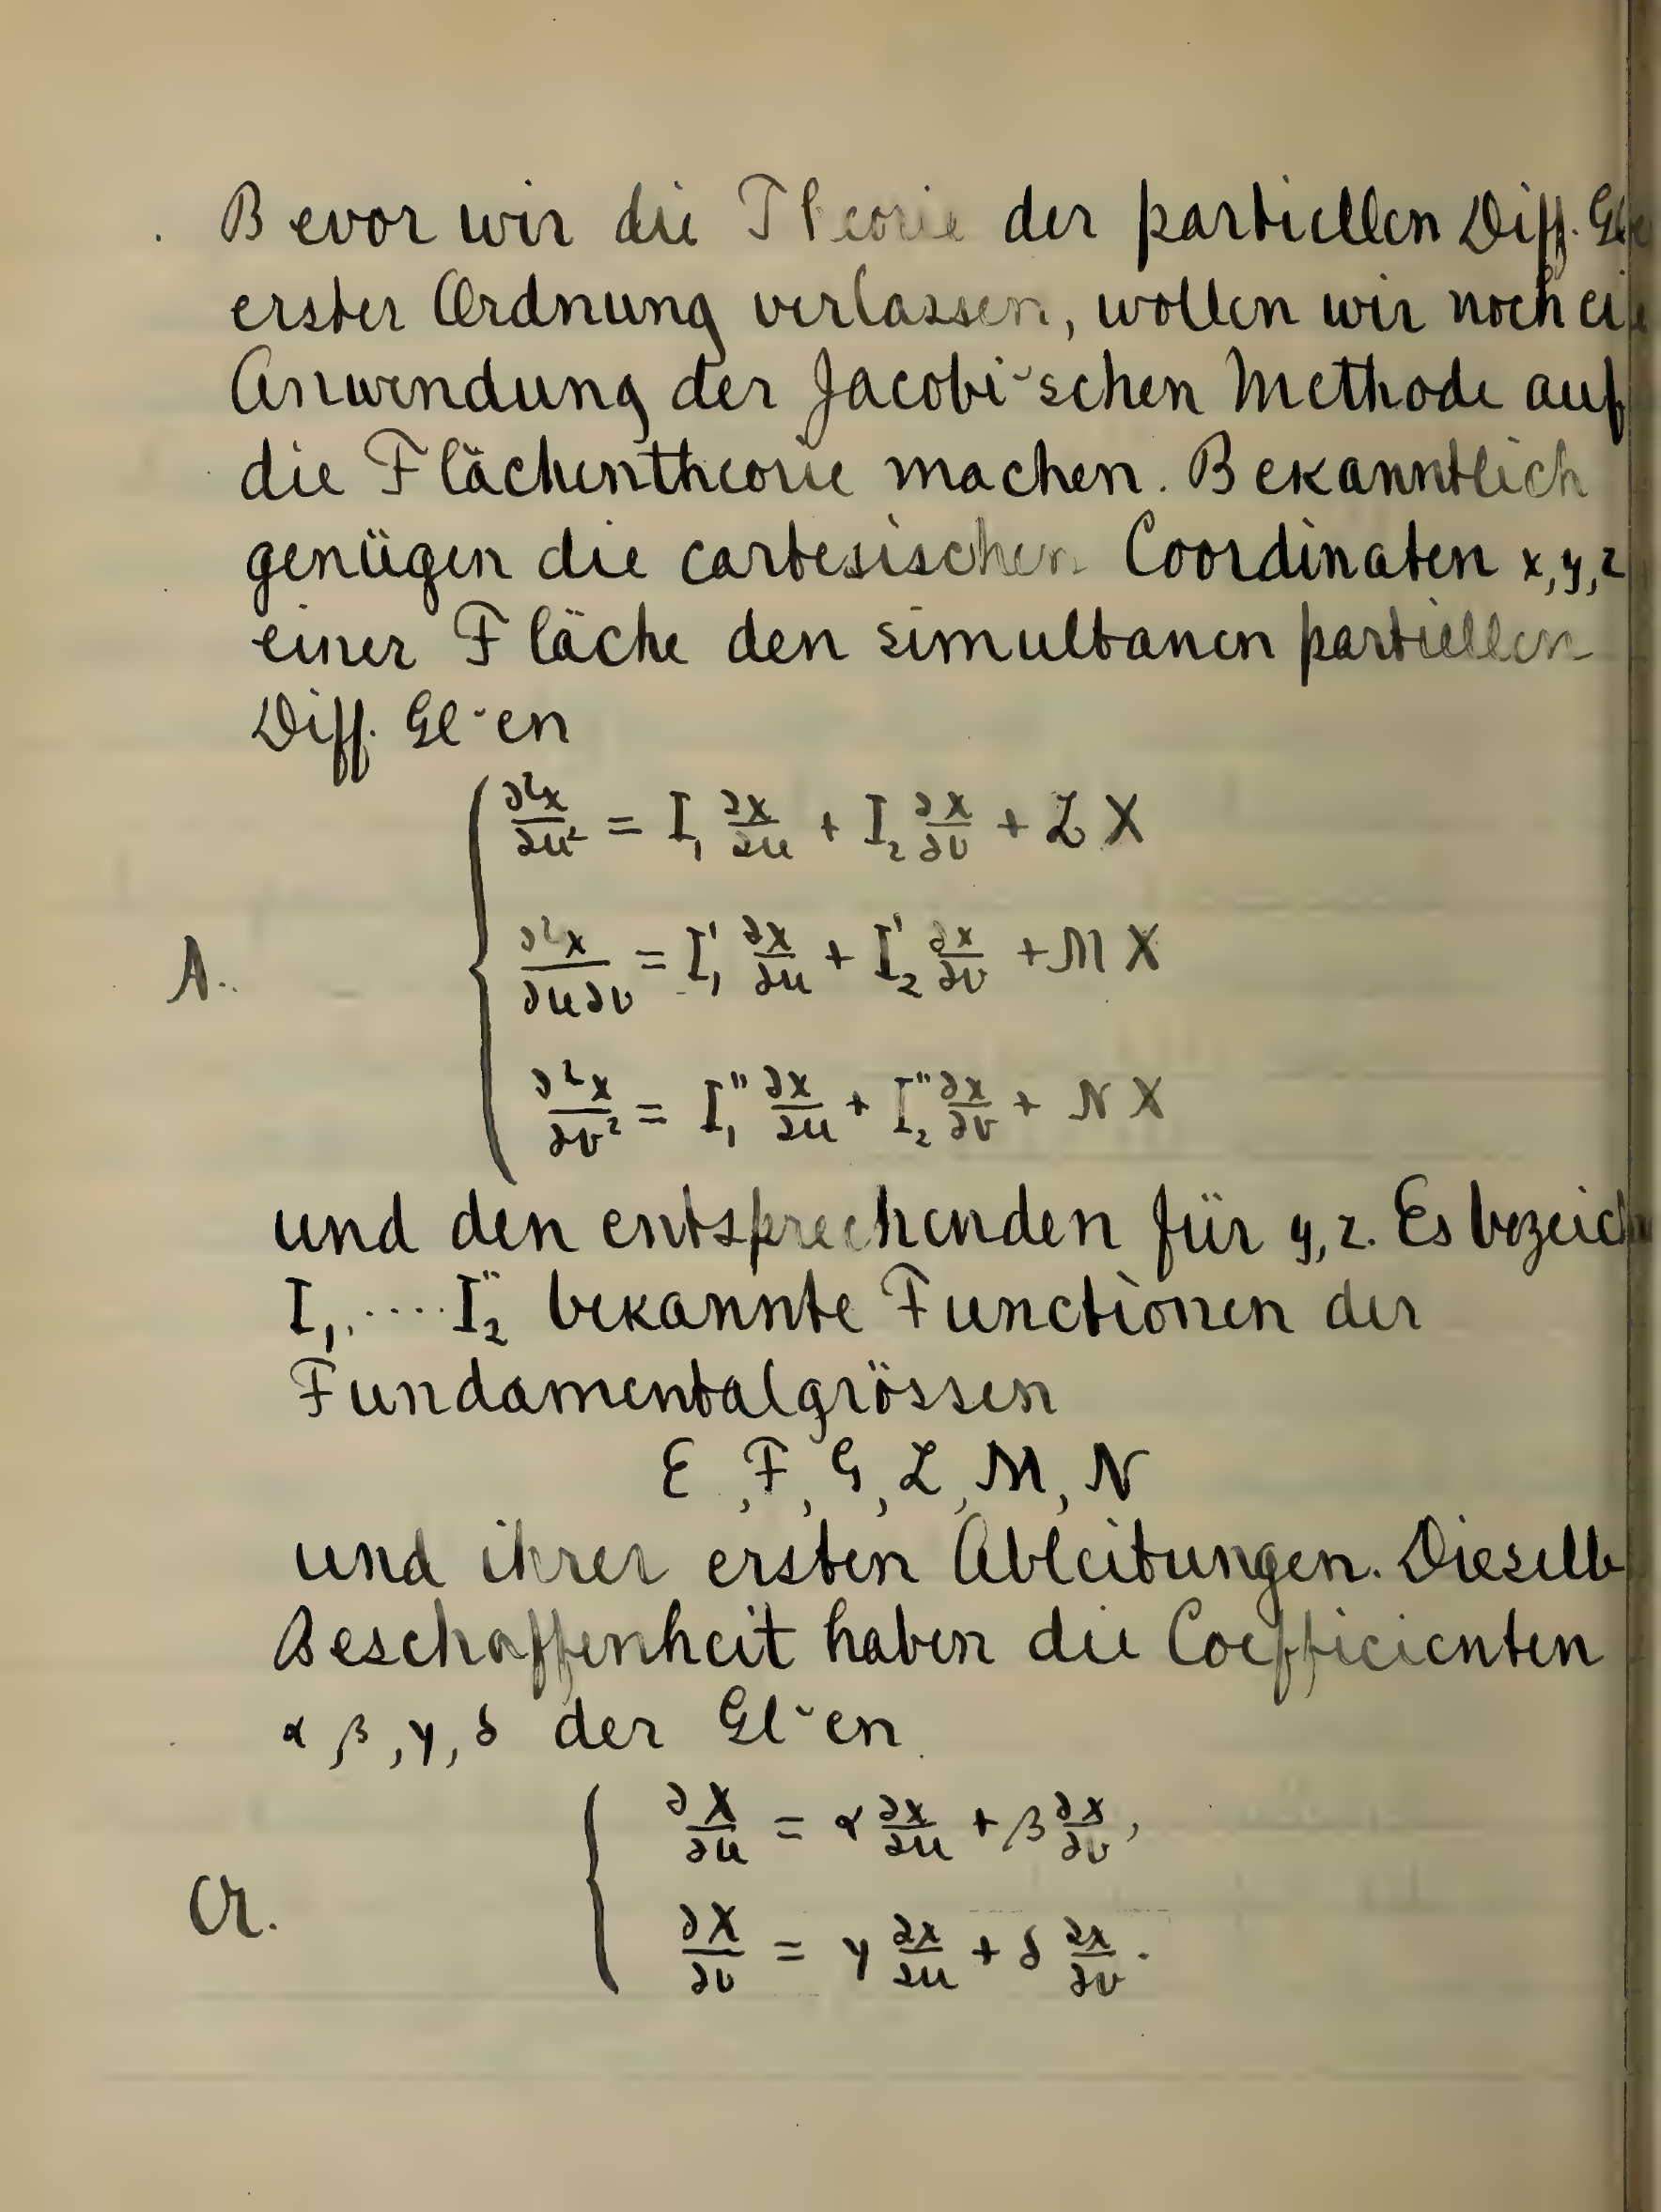 Bevor wir die Theorie der partiellen Diff. Gl
erster Ordnung verlassen, wollen wir noch ei
Anwendung der Jacobi-schen Methode auf
die Flächentheorie machen. Bekanntlich
genügen die cartesischen Coordinaten x, y, z
einer Fläche den simultanen partiellen
Diff. Gl-en
∂²x/∂u² = I₁ ∂x/∂u + I₂ ∂x/∂v + L X
A. ∂²x/∂u∂v = I₁' ∂x/∂u + I₂' ∂x/∂v + M X
∂²x/∂v² = I₁'' ∂x/∂u + I₂'' ∂x/∂v + N X
und den entsprechenden für y, z. Es bezeich
I₁, .... I₂'' bekannte Functionen der
Fundamentalgrössen
E, F, G, L, M, N
und ihrer ersten Ableitungen. Dieselb
Beschaffenheit haben die Coefficienten
α β, γ, δ der Gl-en
∂X/∂u = α ∂x/∂u + β ∂x/∂v,
Ol. ∂X/∂v = γ ∂x/∂u + δ ∂x/∂v.